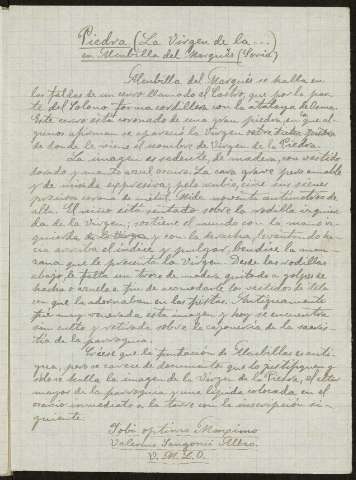 Piedra (La Virgen de la ...)
en Nubilla del Marqués (Soria)
Nubilla del Marqués se halla en
las faldas de un cerro llamado el Castro, que por la par-
te del Solano forma cordillera con la atalaya de
Este cerro está coronado de una gran piedra, en la que al-
gunos afirman se apareció la Virgen sobre dicha piedra
de donde le vino el nombre de Virgen de la Piedra.
La imagen es sedente, de madera, con vestido
dorado y manto azul oscuro. La cara grave pero amable
y de mirada expresiva; pelo rubio, ciñe sus sienes
preciosa corona de metal. Mide noventa centímetros de
alta. El niño está sentado sobre la rodilla izquier-
da de la Virgen, sostiene el mundo con la mano iz-
quierda y con la derecha, levantando ha-
cia arriba el índice y pulgar, bendice la man-
zana que le presenta la Virgen. Desde las rodillas
abajo le falta un trozo de madera quitado a golpes de
hacha o azuela a fin de acomodarle los vestidos de tela
con que la adornaban en las fiestas. Antiguamente
fue muy venerada esta imagen y hoy se encuentra
sin culto y retirada sobre la cajonería de la sacris-
tía de la parroquia.
Créese que la fundación de Nubilla es anti-
gua, pero se carece de documentos que lo justifiquen y
sólo se halla la imagen de la Virgen de la Piedra, el altar
mayor de la parroquia y una lápida colocada en el
inmediato a la torre con la inscripción si-
guiente
Jobi optimo Maximo
Valerius
V. M. L. O.